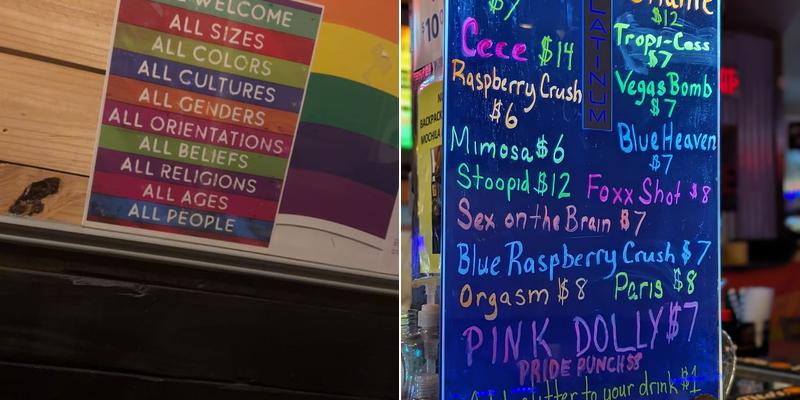 WELCOME
ALL SIZES
ALL COLORS
ALL CULTURES
ALL GENDERS
ALL ORIENTATIONS
ALL BELIEFS
ALL RELIGIONS
ALL AGES
ALL PEOPLE
$10
BACKPACK
MOCHILA
$7
Cece $14
Raspberry Crush
$6
Mimosa $6
Stoopid $12
PLATINUM
$12
Tropi-Cass
$7
Vegas Bomb
$7
Blue Heaven
$7
Foxx Shot $8
Sex on the Brain $7
Blue Raspberry Crush $7
Orgasm $8
Paris $8
PINK DOLLY $7
PRIDE PUNCH $8
glitter to your drink $1